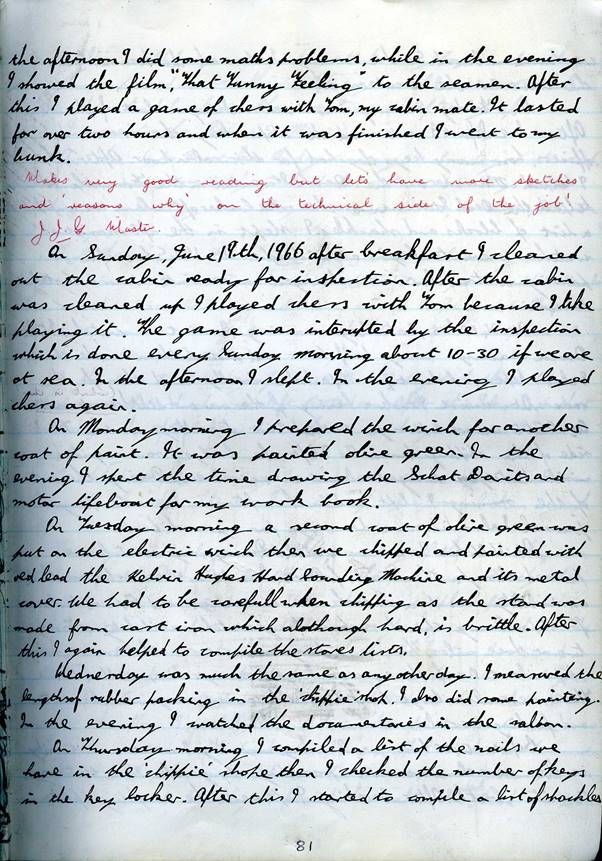 the afternoon I did some maths problems, while in the evening
I showed the film, "That Funny Feeling" to the seamen. After
this I played a game of chess with Tom, my cabin mate. It lasted
for over two hours and when it was finished I went to my
bunk.
Makes very good reading but let's have more sketches
and 'reasons why' on the technical side of the job!
J.J.G Master.
On Sunday, June 19th, 1966 after breakfast I cleaned
out the cabin ready for inspection. After the cabin
was cleaned up I played chess with Tom because I like
playing it. The game was interupted by the inspection
which is done every Sunday morning about 10-30 if we are
at sea. In the afternoon I slept. In the evening I played
chess again.
On Monday morning I prepared the winch for another
coat of paint. It was painted olive green. In the
evening I spent the time drawing the Schat Davits and
motor lifeboat for my work book.
On Tuesday morning a second coat of olive green was
put on the electric winch then we chipped and painted with
red lead the Kelvin Hughes Hand Sounding Machine and its metal
cover. We had to be carefull when chipping as the stand was
made from cast iron which alothough hard, is brittle. After
this I again helped to compile the stores lists,
Wednesday was much the same as any other day. I measured the
lengths of rubber packing in the 'chippie' shop. I also did some painting.
In the evening I watched the documentaries in the saloon.
On Thursday morning I compiled a list of the nails we
have in the 'chippie' shope then I checked the number of keys
in the key locker. After this I started to compile a list of shackles
81